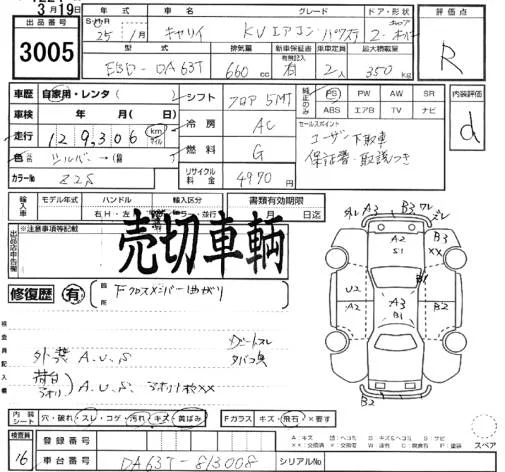 3月19日
出品番号 3005
年式 車名 グレード ドア・形状 評価点
25 1月 キャリイ KVエアコン・パワステ 2
型式 排気量 新車保証書 車車定員 最大積載量
有無記入
EBD-DA63T 660cc 有 2人 350kg R
車歴 自家用・レンタ( )
シフト フロア5MT
装備品のみ PS PW AW SR
ABS エアB TV ナビ
内装評価 d
車検 年 月(日)
冷房 AC
セールスポイント
ユーザー下取車
保証書・取説つき
走行 129,306 km マイル
燃料 G
色 シルバー→(
カラーNo Z2S
リサイクル料金 4970円
輸入車 モデル年式 ハンドル 輸入区分 書類有効期限
右H・左 ・並行 月 日迄
出品店申告欄 ※注意事項等記載
売切車輌
修復歴 有 箇所 Fクロスメンバー曲がり
検査員記入欄
外装 A.U.S
荷台 アオリ A.U.S. アオリ1枚XX
ダッシュボードスレ
タバコ臭
外レ A3 B3 ワレ ズレ
A2 S1 B3 XX
U2 A3 B1
A2 B2
B2
内装シート 穴・破れ・スレ・コゲ・汚れ・キズ・黄ばみ
Fガラス キズ・飛石・×要す
スペア
検査員 16
登録番号
車台番号 DA63T-813008 シリアルNo
A:キズ U:ヘコミ B:キズ&ヘコミ S:サビ